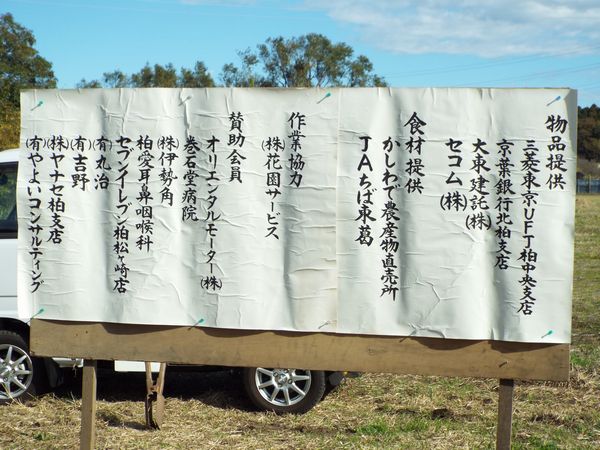 物品提供
三菱東京UFJ柏中央支店
京葉銀行北柏支店
大東建託(株)
セコム(株)
食材提供
かしわで農産物直売所
JAちば東葛
作業協力
(株)花園サービス
賛助会員
オリエンタルモーター(株)
巻石堂病院
(株)伊勢角
柏愛耳鼻咽喉科
セブンイレブン柏松ヶ崎店
(有)丸治
(有)吉野
(株)ヤナセ柏支店
(有)やよいコンサルティング